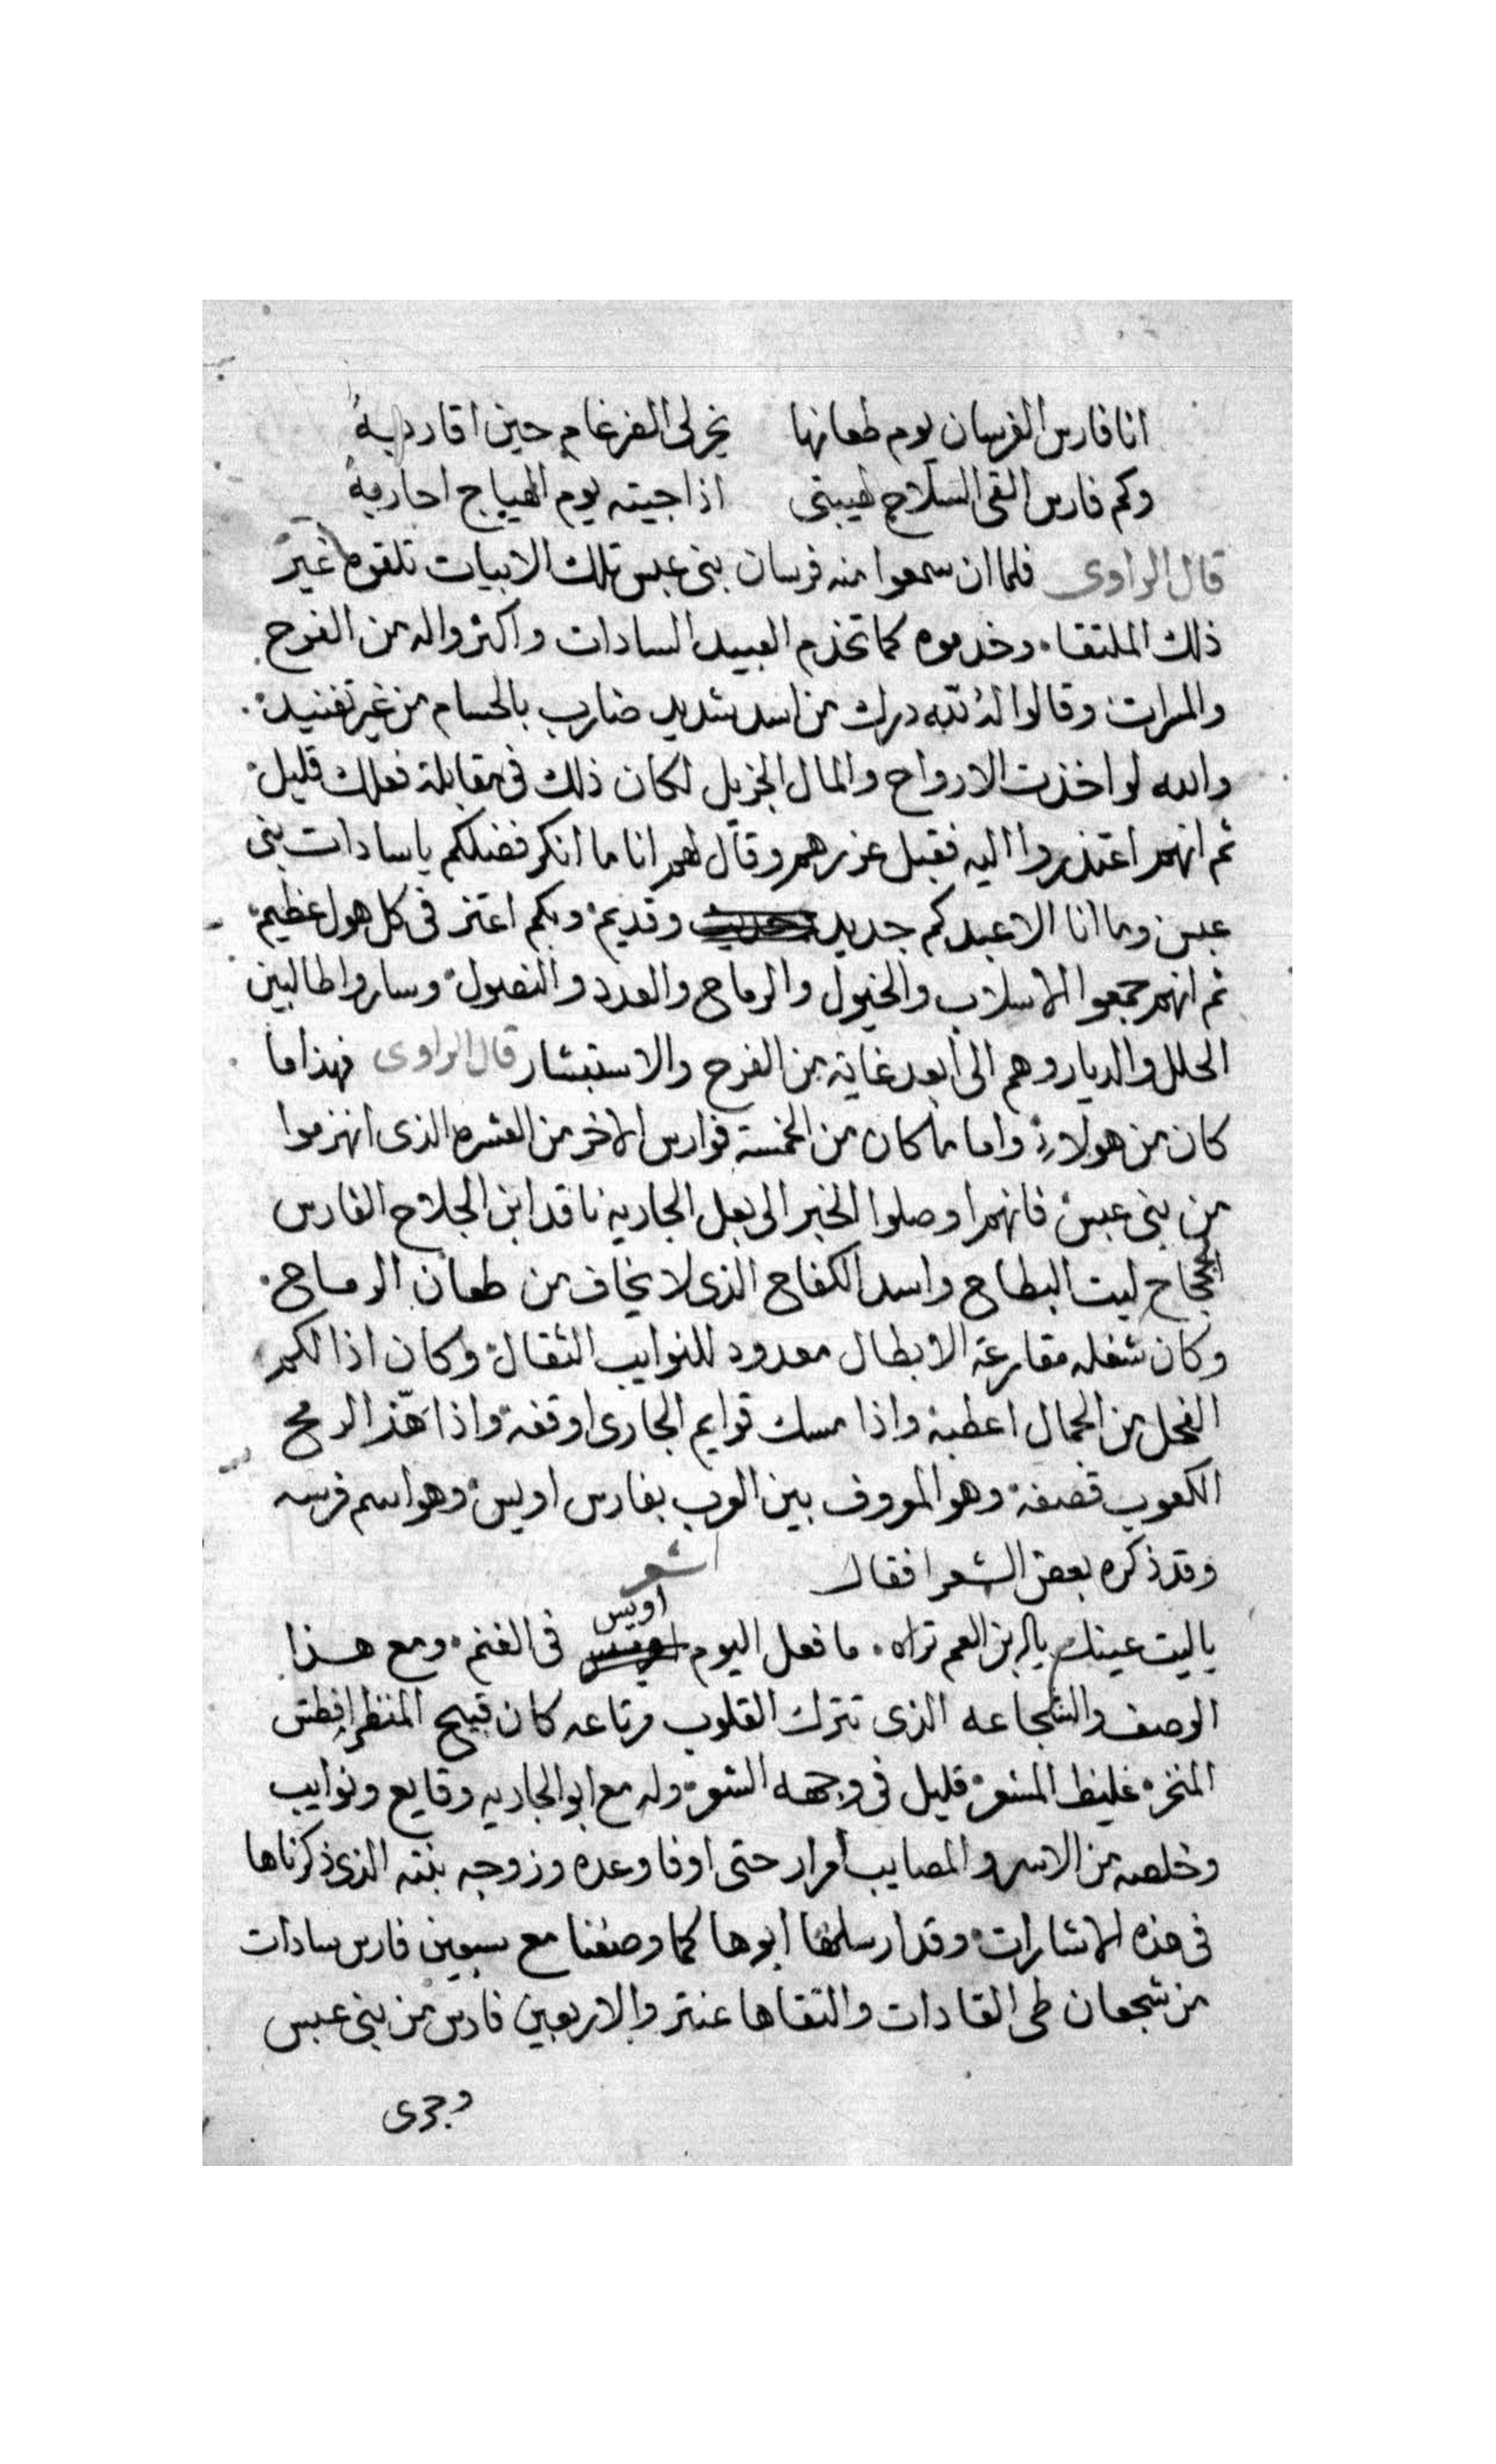 انا فارس الفرسان يوم طعانها يخر لى الضرغام حين اقاربهُ
وكم فارس القى السلاح لهيبتى اذا جيته يوم الهياج احاربهُ
قال الراوى فلما ان سمعوا منه فرسان بنى عبس تلك الابيات تلقوه غير
ذلك الملتقا. وخدموه كما تخذم العبيد السادات واكثروا له من الفرح
والمرات وقالوا لهُ لله درك من اسد شديد ضارب بالحسام من غير تفنيد.
والله لو اخذت الارواح والمال الجزيل لكان ذلك فى مقابلة فعلك قليل
ثم انهم اعتذروا اليه فقبل عزرهم وقال لهم انا ما انكر فضلكم يا سادات بنى
عبس وما انا الا عبدكم جديد وقديم وبكم اعتز فى كل هول عظيم
ثم انهم جمعوا الاسلاب والخيول والرماح والعدد والنصول وساروا طالبين
الحلل والديار وهم الى أبعد غاية من الفرح والاستبشار قال الراوى فهذا ما
كان من هولاء واما ما كان من الخمسة فوارس الاخر من العشره الذى انهزموا
من بنى عبس فانهم اوصلوا الخبر الى بعل الجارية ناقد ابن الجلاح الفارس
الججاح ليت البطاح واسد الكفاح الذى لا يخاف من طعان الرماح.
وكان شغله مقارعة الابطال معدود للنوايب الثقال وكان اذا لكم
الفحل من الجمال اعطبه واذا مسك قوايم الجارى اوقفه واذا هّذ الرمح
الكعوب قصفه وهو المعروف بين العرب بفارس اويس وهو اسم فرسه
وقد ذكره بعض الشعرا فقال شعر
ياليت عينك يا بن العم تراه. ما فعل اليوم اويس فى الغنم. ومع هذا
الوصف والشجاعه الذى تترك القلوب مرتاعه كان قبيح المنظر افطش
المنخره غليظ المشعر قليل فى وجهه الشعر وله مع ابو الجاريه وقايع ونوايب
وخلصه من الاسر والمصايب أمرار حتى اوفا وعده وزوجه بنته الذى ذكرناها
فى هذه الاشارات وقد ارسلها ابوها كما وصفنا مع سبعين فارس سادات
من شجعان طى القادات والتقاها عنتر والاربعين فارس من بنى عبس
وجرى